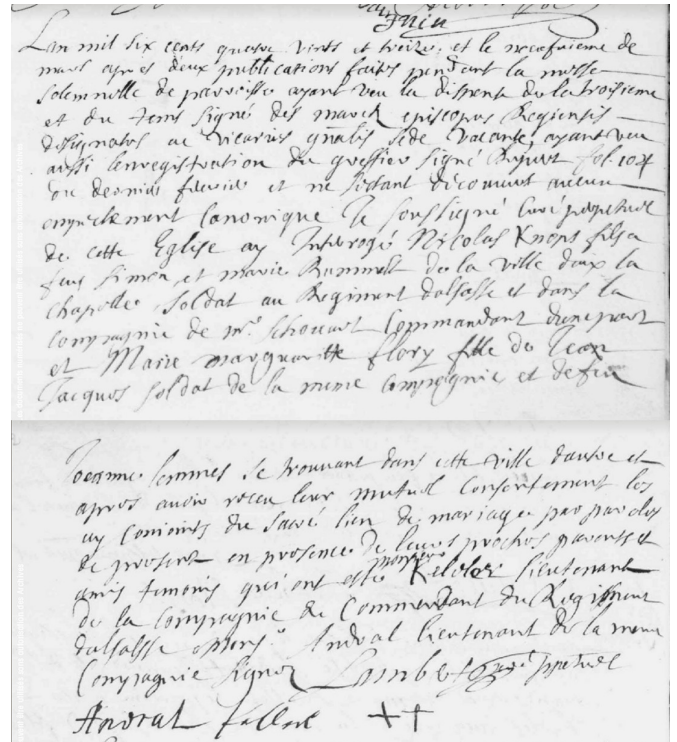 Juin
Lan mil six cents quatre vints et treize et le neufuieme de
mars apres deux publications faites pendant la messe
solemnelle de parroisse ayant veu la dispense de la troisieme
et du tems signé des episcopus Regiensis
designatus ac vicarius gnalis sede vacante, ayant veu
aussi lenregistration du greffier signé fol. 104
du dernier feurier et ne sestant découuert aucun
empeschement Canonique Je soussigné Curé perpetuel
de cette Eglise ay Interrogé Nicolas Knops fils a
feus Simon et marie Rummelt de la ville daix la
Chapelle soldat au Regiment dalsasse et dans la
compagnie de mr. Schouart Commandant dune part
et Marie marguaritte flory fille de Jean
Jacques soldat de la meme compagnie et de feue
Jeanne lemmes se trouuant dans cette ville et
apres auoir receu leur mutuel Consentement les
ay Conioints du sacré lien de mariage par paroles
de present en presence de leurs proches parents et
amis temoins qui ont esté monsieur lieutenant
de la Compagnie du Commendant du Regiment
dalsasse Andral lieutenant de la meme
Compagnie signez Lambert curé ppetuel
Andral ++